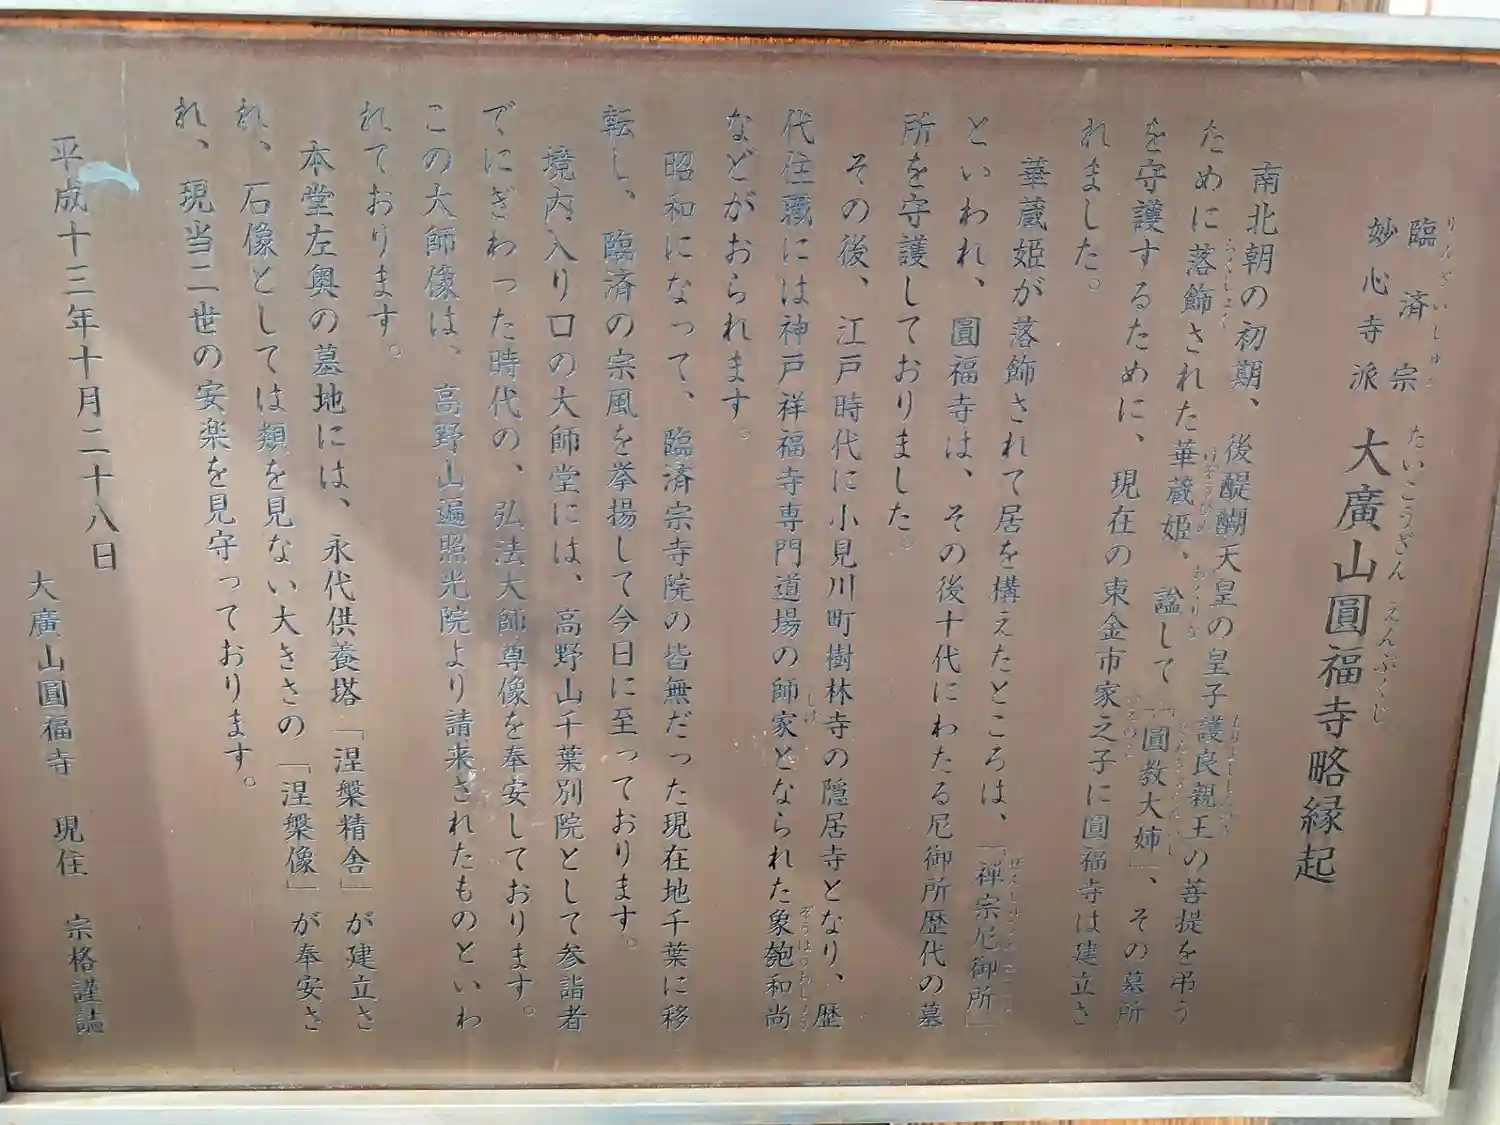 臨済宗
妙心寺派
大廣山圓福寺略縁起
りんざいしゅう
たいこうざん えんぷくじ
南北朝の初期、後醍醐天皇の皇子護良親王の菩提を弔う
ために落飾された華蔵姫、諡して「圓教大姉」、その墓所
を守護するために、現在の東金市家之子に圓福寺は建立さ
れました。
華蔵姫が落飾されて居を構えたところは、「禅宗尼御所」
といわれ、圓福寺は、その後十代にわたる尼御所歴代の墓
所を守護しておりました。
その後、江戸時代に小見川町樹林寺の隠居寺となり、歴
代住職には神戸祥福寺専門道場の師家となられた象匏和尚
などがおられます。
昭和になって、臨済宗寺院の皆無だった現在地千葉に移
転し、臨済の宗風を挙揚して今日に至っております。
境内入り口の大師堂には、高野山千葉別院として参詣者
でにぎわった時代の、弘法大師尊像を奉安しております。
この大師像は、高野山遍照光院より請来されたものといわ
れております。
本堂左奥の墓地には、永代供養塔「涅槃精舎」が建立さ
れ、石像としては類を見ない大きさの「涅槃像」が奉安さ
れ、現当二世の安楽を見守っております。
平成十三年十月二十八日
大廣山圓福寺 現住 宗格謹誌